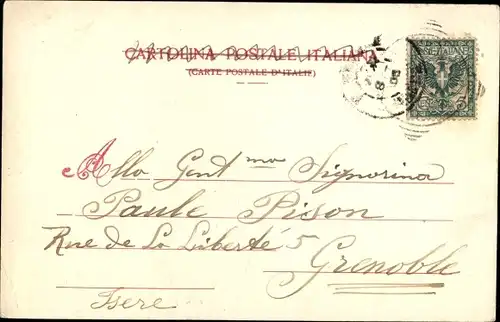 CARTOLINA POSTALE ITALIANA
(CARTE POSTALE D'ITALIE)
Alla Gent.ma Signorina
Paule Pison
Rue de La Liberté 5
Grenoble
Isere